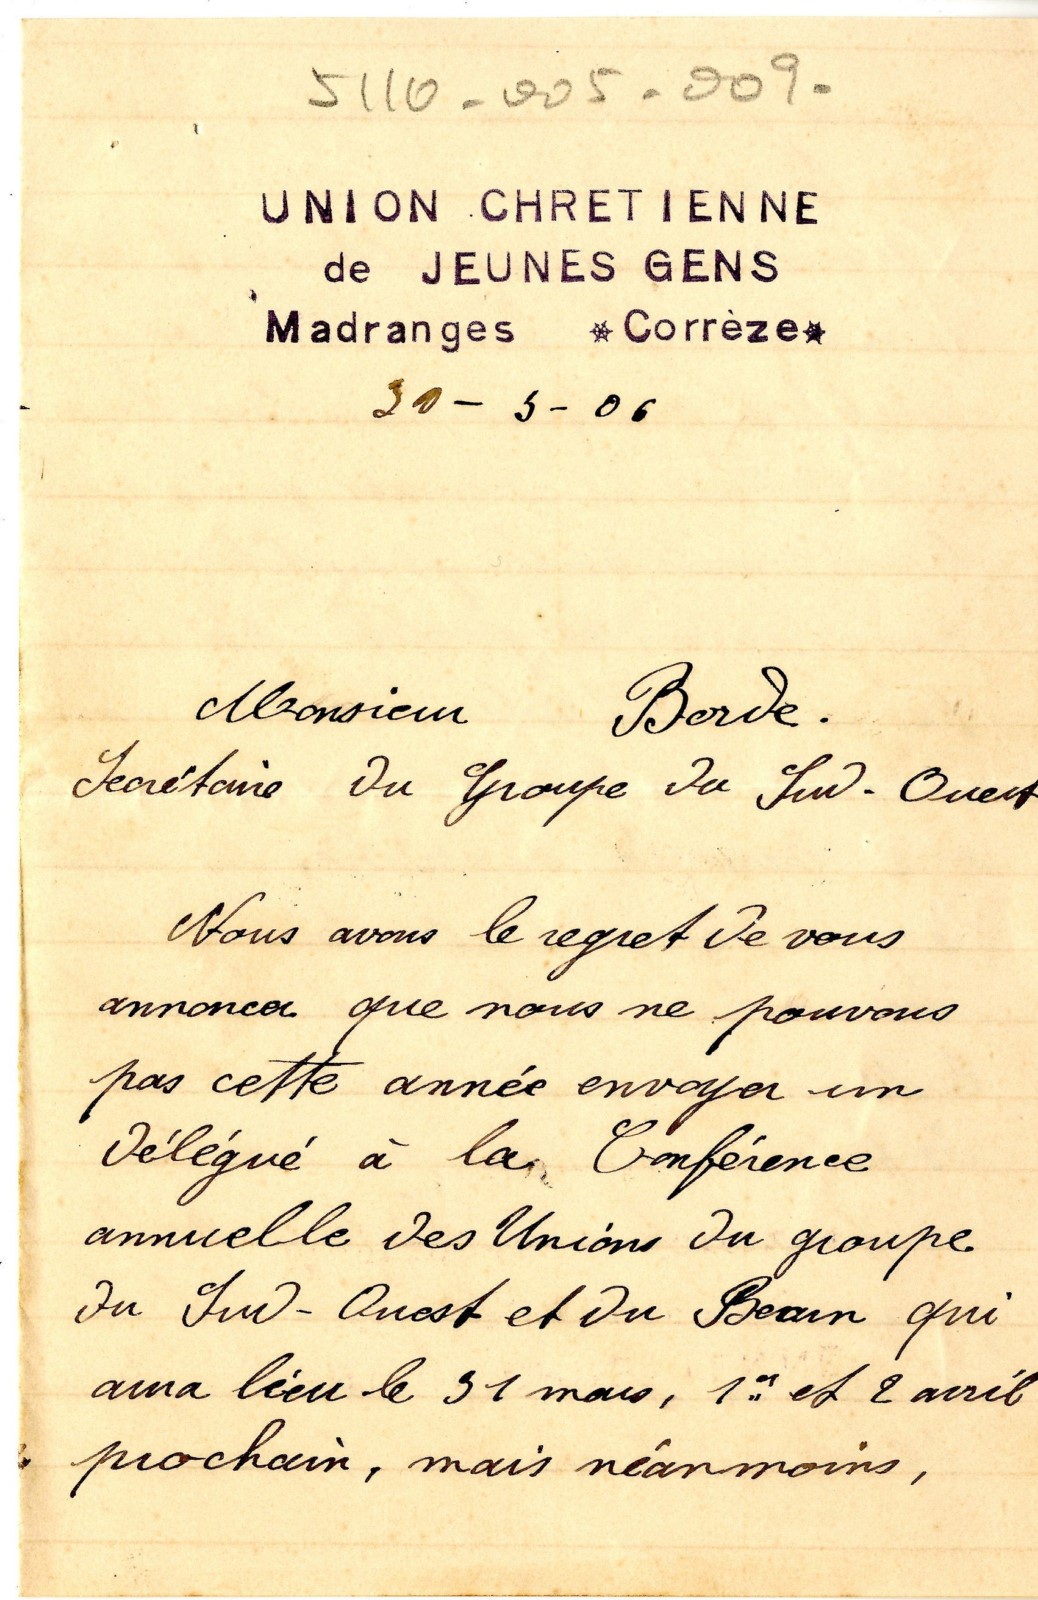 5110-005-009-
UNION CHRETIENNE
de JEUNES GENS
Madranges *Corrèze*
30-3-06
Monsieur Borde.
Secrétaire du Groupe du Sud-Ouest
Nous avons le regret de vous
annoncer que nous ne pouvons
pas cette année envoyer un
délégué à la Conférence
annuelle des Unions du groupe
du Sud-Ouest et du Bearn qui
aura lieu le 31 mars, 1er et 2 avril
prochain, mais néanmoins,